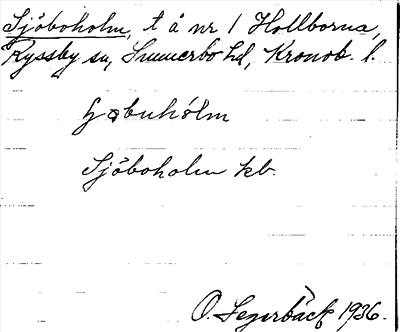 Sjöboholm, t å nr 1 Hallborna,
Ryssby sn, Sunnerbo hd, Kronob. l.
Sjöboholm kb.
O. Segerbäck 1936.